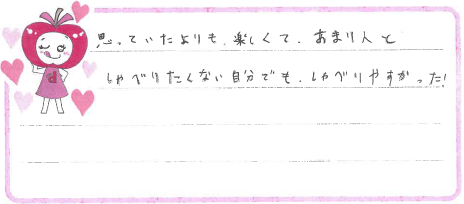 思っていたよりも、楽しくて、あまり人と
しゃべりたくない自分でも、しゃべりやすかった!